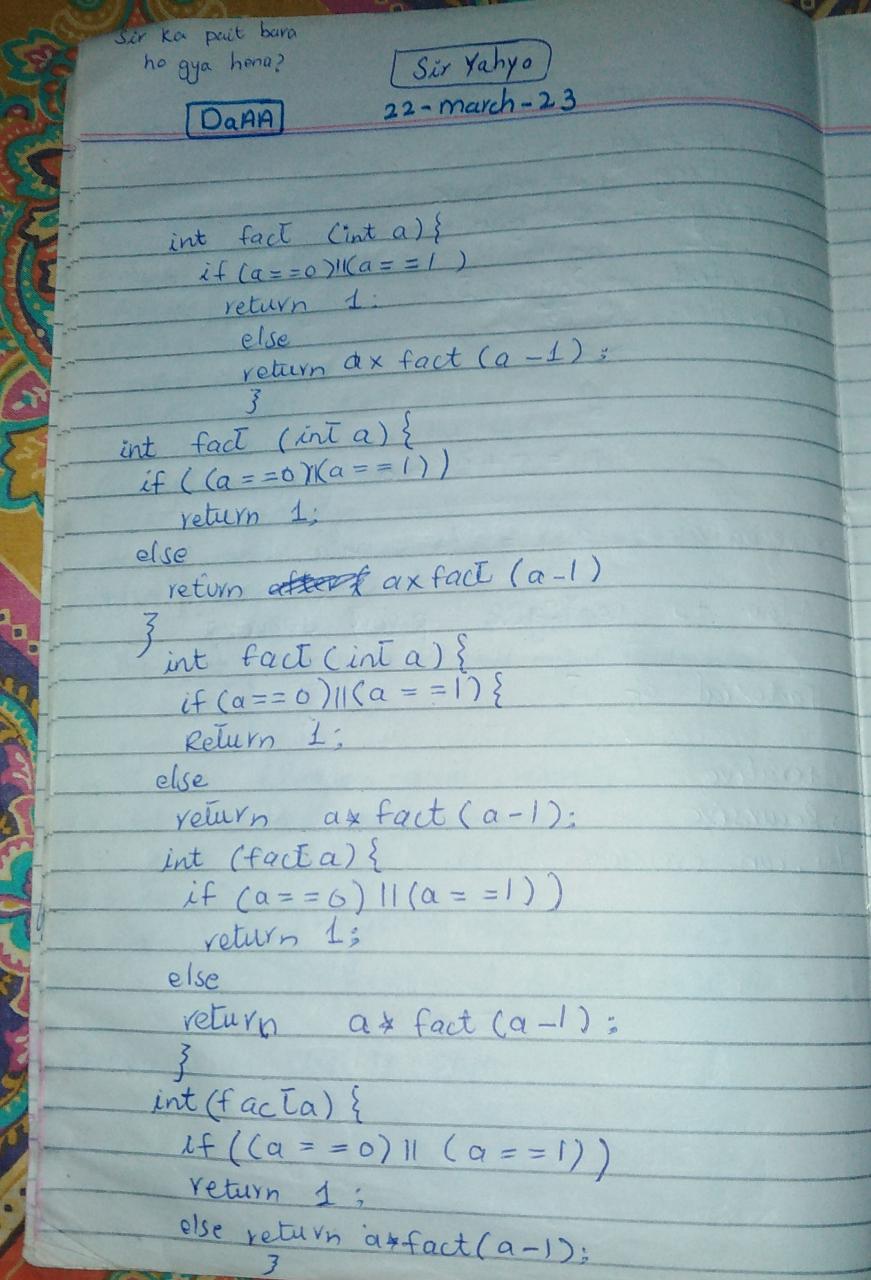 Sir ka pait bara
ho gya hena?
Sir Yahyo
DaAA
22-march-23
int fact (int a) {
if (a==0)||(a==1)
return 1;
else
return a x fact (a-1);
}
int fact (int a) {
if ((a==0)(a==1))
return 1;
else
return a x fact (a-1)
}
int fact (int a) {
if (a==0)||(a==1) {
Return 1;
else
return a * fact (a-1);
int (fact a) {
if (a==0) || (a==1))
return 1;
else
return a * fact (a-1);
}
int (fact a) {
if ((a==0) || (a==1))
return 1;
else return a*fact(a-1);
}